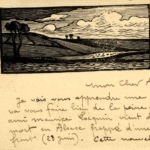 Mon Cher
Je vais vous apprendre une
va vous faire bien de la peine
ami Maurice
mort en Alsace frappé d'une
(23 Juin). Cette nouvelle